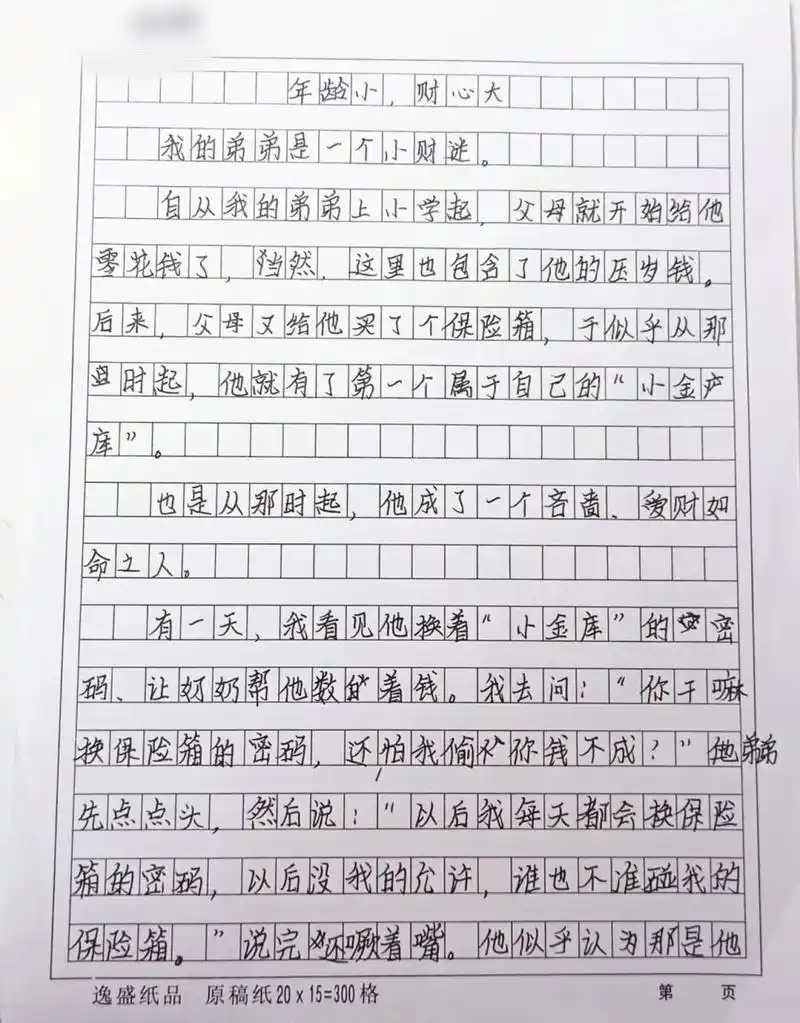 年龄小，财心大
我的弟弟是一个小财迷。
自从我的弟弟上小学起，父母就开始给他
零花钱了，当然，这里也包含了他的压岁钱。
后来，父母又给他买了个保险箱，于似乎从那
时起，他就有了第一个属于自己的“小金
库”。
也是从那时起，他成了一个吝啬、爱财如
命之人。
有一天，我看见他换着“小金库”的密
码、让奶奶帮他数着钱。我去问：“你干嘛
换保险箱的密码，还怕我偷你钱不成？”他弟弟
先点点头，然后说：“以后我每天都会换保险
箱的密码，以后没我的允许，谁也不准碰我的
保险箱。”说完还噘着嘴。他似乎认为那是他
逸盛纸品 原稿纸20×15=300格 第 页